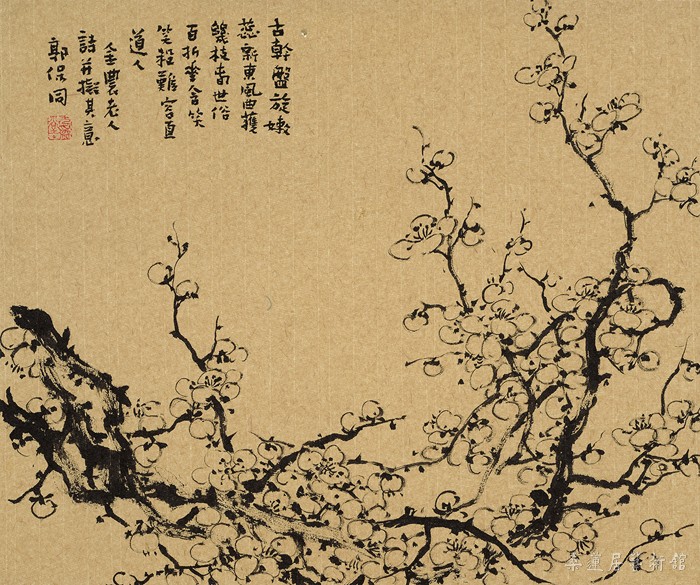 古幹盤旋嫩
蕊新東風曲護
幾枝春世俗
百折含笑
笑殺難容直
道人
金農老人
詩并擬其意
郭保同
蓮居藝術館